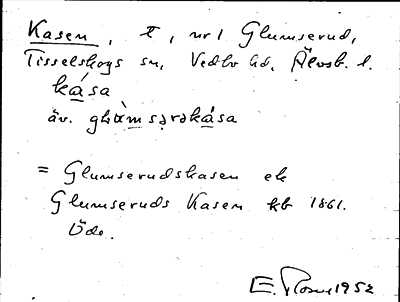 Kasen, t, nr 1 Glumserud,
Tisselskogs sn, Vedbo hd, Älvsb. l.
kása
äv. glumsərəkása
= Glumserudskasen el
Glumseruds Kasen kb 1861.
Öde.
E. Rosell 1952